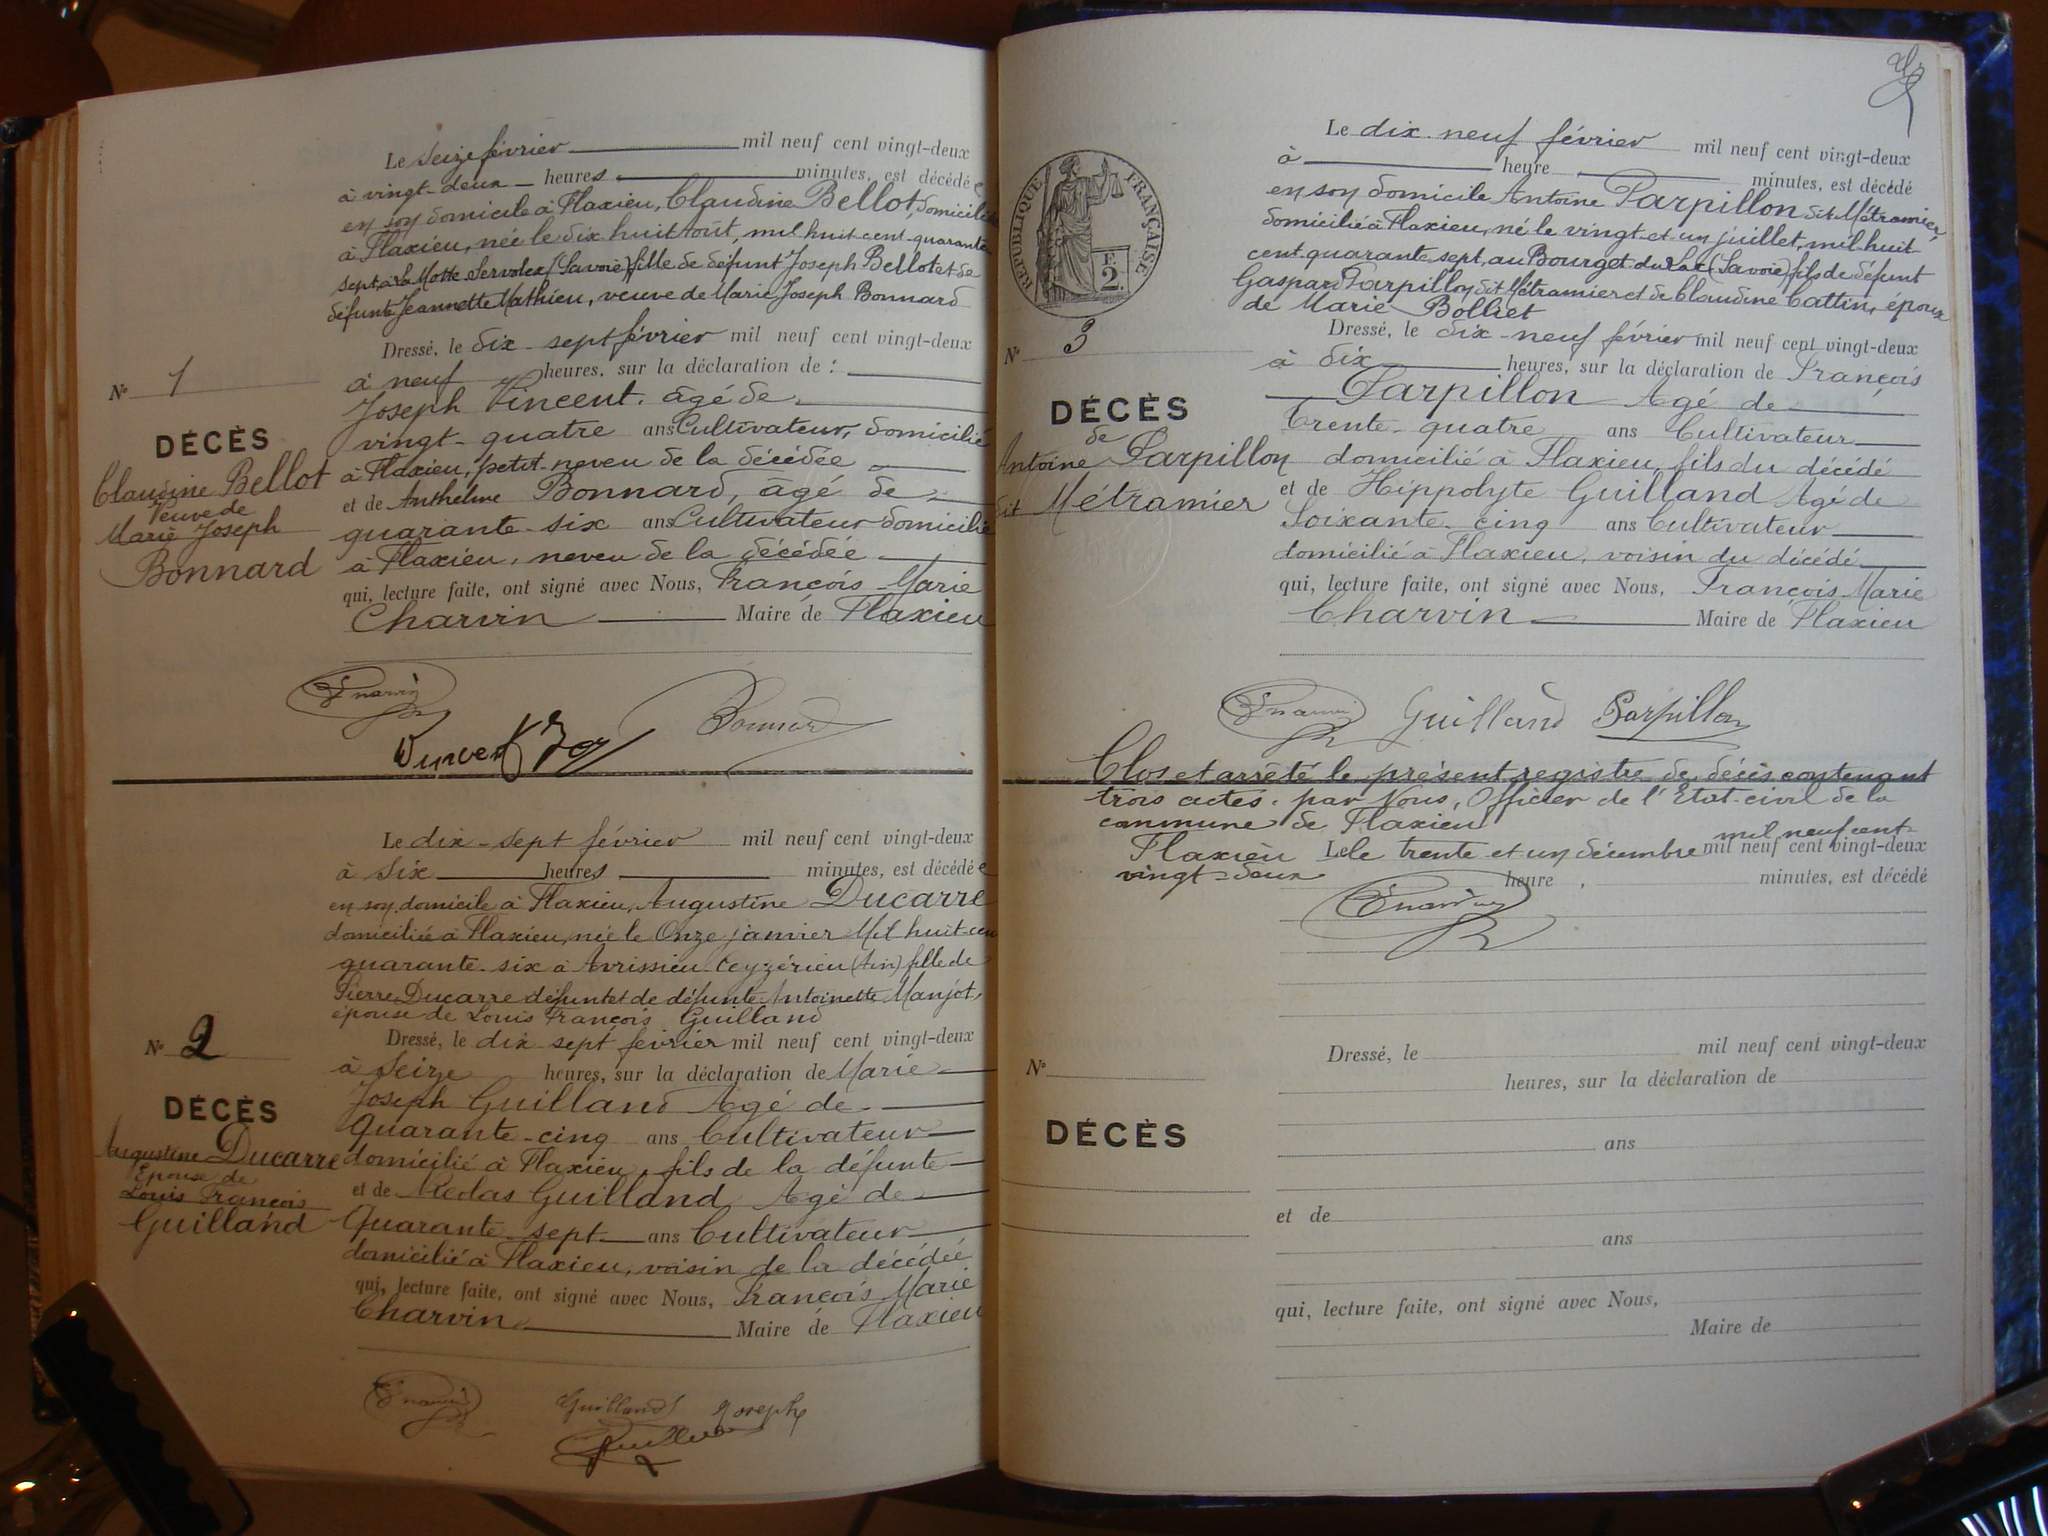 Le Seize février mil neuf cent vingt-deux
à vingt-deux heures minutes, est décédée
en son domicile à Flaxieu, Claudine Bellot, domiciliée
à Flaxieu, née le dix huit Août, mil huit cent quarante
sept, à La Motte Servolex (Savoie) fille de défunt Joseph Bellot et de
défunte Jeannette Mathieu, veuve de Marie Joseph Bonnard
Dressé, le dix-sept février mil neuf cent vingt-deux
à neuf heures, sur la déclaration de :
Joseph Vincent, âgé de
vingt-quatre ans Cultivateur, domicilié
à Flaxieu, petit-neveu de la décédée
et de Anthelme Bonnard, âgé de
quarante-six ans Cultivateur domicilié
à Flaxieu, neveu de la décédée
qui, lecture faite, ont signé avec Nous, François-Marie
Charvin Maire de Flaxieu
N° 1
DÉCÈS
Claudine Bellot
Veuve de
Marie Joseph
Bonnard
Charvin
Bonnard
Le dix-sept février mil neuf cent vingt-deux
à six heures minutes, est décédée
en son domicile à Flaxieu, Augustine Ducarre
domiciliée à Flaxieu, née le Onze janvier Mil huit cent
quarante-six à Avrissieu-Ceyzérieu (Ain) fille de
Pierre Ducarre défunt et de défunte Antoinette Manjot,
épouse de Louis François Guilland
Dressé, le dix sept février mil neuf cent vingt-deux
à Seize heures, sur la déclaration de Marie
Joseph Guilland Agé de
Quarante-cinq ans Cultivateur
domicilié à Flaxieu, fils de la défunte
et de Nicolas Guilland Agé de
Quarante sept ans Cultivateur
domicilié à Flaxieu, voisin de la décédée
qui, lecture faite, ont signé avec Nous, François Marie
Charvin Maire de Flaxieu
N° 2
DÉCÈS
Augustine Ducarre
Epouse de
Louis François
Guilland
Charvin Guilland Joseph
Guilland
Le dix-neuf février mil neuf cent vingt-deux
à heure minutes, est décédé
en son domicile Antoine Parpillon dit Métramier,
domicilié à Flaxieu, né le vingt-et-un juillet, mil huit
cent quarante sept, au Bourget du Lac (Savoie) fils de défunt
Gaspard Parpillon dit Métramier et de Claudine Cattin, époux
de Marie Bolliet
Dressé, le dix-neuf février mil neuf cent vingt-deux
à dix heures, sur la déclaration de François
Parpillon Agé de
Trente-quatre ans Cultivateur
domicilié à Flaxieu, fils du décédé
et de Hippolyte Guilland Agé de
Soixante-cinq ans Cultivateur
domicilié à Flaxieu, voisin du décédé
qui, lecture faite, ont signé avec Nous, François Marie
Charvin Maire de Flaxieu
RÉPUBLIQUE FRANÇAISE
F.
2.
N° 3
DÉCÈS
de
Antoine Parpillon
dit Métramier
Charvin Guilland Parpillon
Clos et arrêté le présent registre de décès contenant
trois actes, par Nous, Officier de l'Etat-civil de la
commune de Flaxieu
mil neuf cent
Flaxieu Le le trente et un décembre mil neuf cent vingt-deux
vingt-deux heure minutes, est décédé
Charvin
Dressé, le mil neuf cent vingt-deux
heures, sur la déclaration de
ans
et de
ans
qui, lecture faite, ont signé avec Nous,
Maire de
N°
DÉCÈS